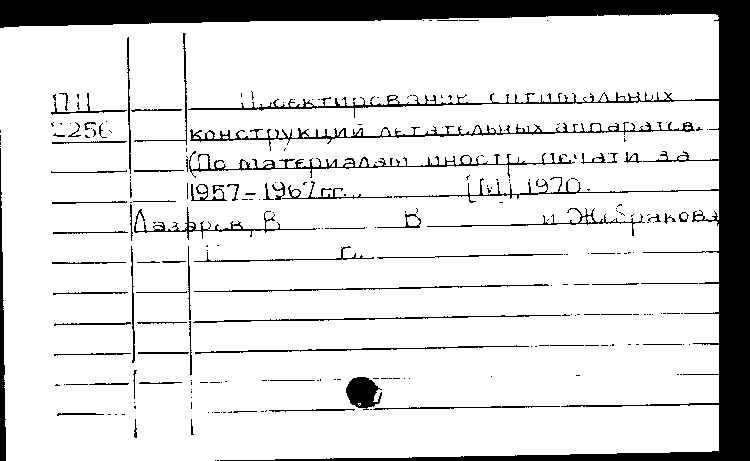 Проектирование оптимальных
конструкций летательных аппаратов.
(По материалам иностр. печати за
1957-1967 гг. [М], 1970.
Лазарев, В В и Жебракова,
Г.